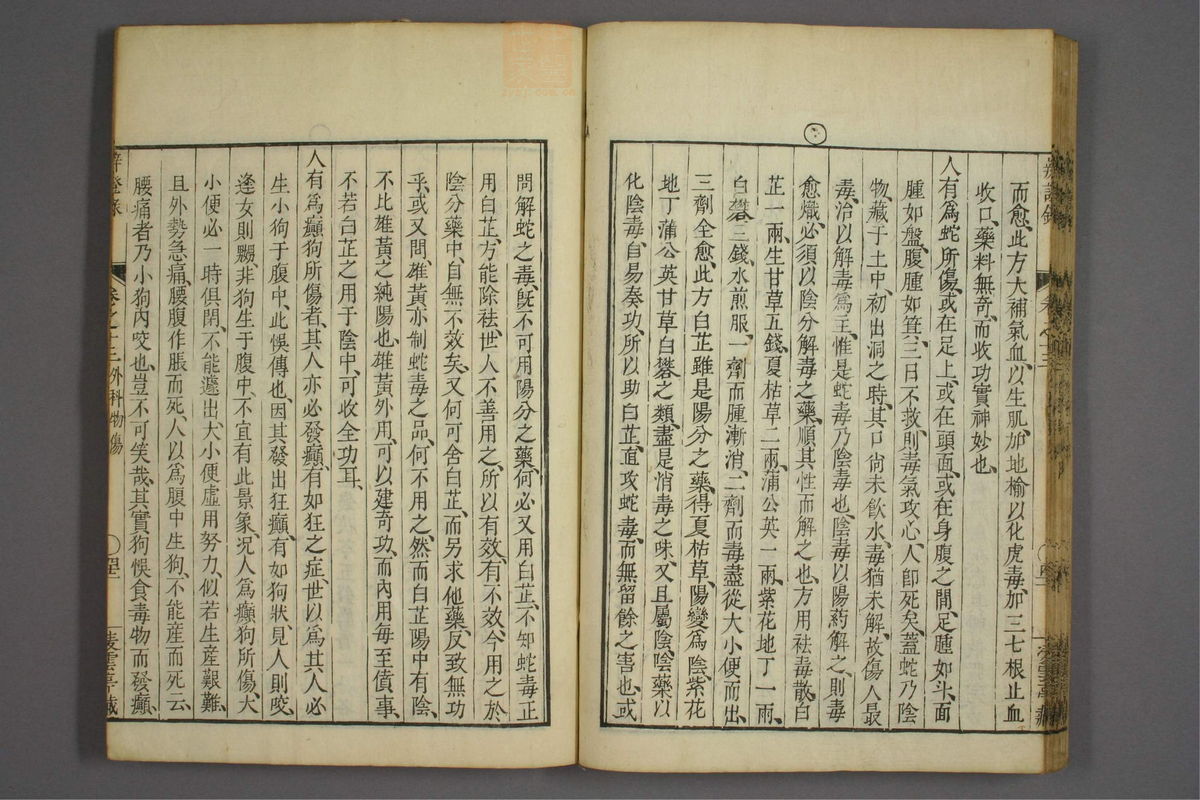 而愈、此方大補氣血、以生肌、加地榆以化虎毒、加三七根止血
收口、藥料無奇、而收功實神妙也、
人有爲蛇所傷、或在足上、或在頭面、或在身腹之間、足腫如斗、面
腫如盤、腹腫如箕、三日不救、則毒氣攻心、人卽死矣、蓋蛇乃陰
物、藏于土中、初出洞之時、其口尙未飲水、毒猶未解、故傷人最
毒、治以解毒爲主、惟是蛇毒乃陰毒也、陰毒以陽药解之、則毒
愈熾、必須以陰分解毒之藥、順其性而解之也、方用祛毒散、白
芷一兩、生甘草五錢、夏枯草二兩、蒲公英一兩、紫花地丁一兩、
白礬三錢、水煎服、一劑而腫漸消、二劑而毒盡從大小便而出、
三劑全愈、此方白芷雖是陽分之藥、得夏枯草、陽變爲陰、紫花
地丁蒲公英甘草白礬之類、盡是消毒之味、又且屬陰、陰藥以
化陰毒、自易奏功、所以助白芷、直攻蛇毒、而無留餘之害也、或
問解蛇之毒、旣不可用陽分之藥、何必又用白芷、不知蛇毒正
用白芷、方能除祛、世人不善用之、所以有效、有不效、今用之於
陰分藥中、自無不效矣、又何可舍白芷、而另求他藥、反致無功
乎、或又問、雄黃亦制蛇毒之品、何不用之、然而白芷陽中有陰、
不比雄黃之純陽也、雄黃外用、可以建奇功、而內用每至債事、
不若白芷之用于陰中、可收全功耳、
人有爲癲狗所傷者、其人亦必發癲、有如狂之症、世以爲其人必
生小狗于腹中、此悞傳也、因其發出狂癲、有如狗狀、見人則咬、
逢女則嬲、非狗生于腹中、不宜有此景象、况人爲癲狗所傷、大
小便必一時俱閉、不能遽出、大小便虛用努力、似若生産艱難、
且外勢急痛、腰腹作脹而死、人以爲腹中生狗、不能産而死云、
腰痛者乃小狗內咬也、豈不可笑哉、其實狗悞食毒物而發癲、
卷之十三 外科物傷